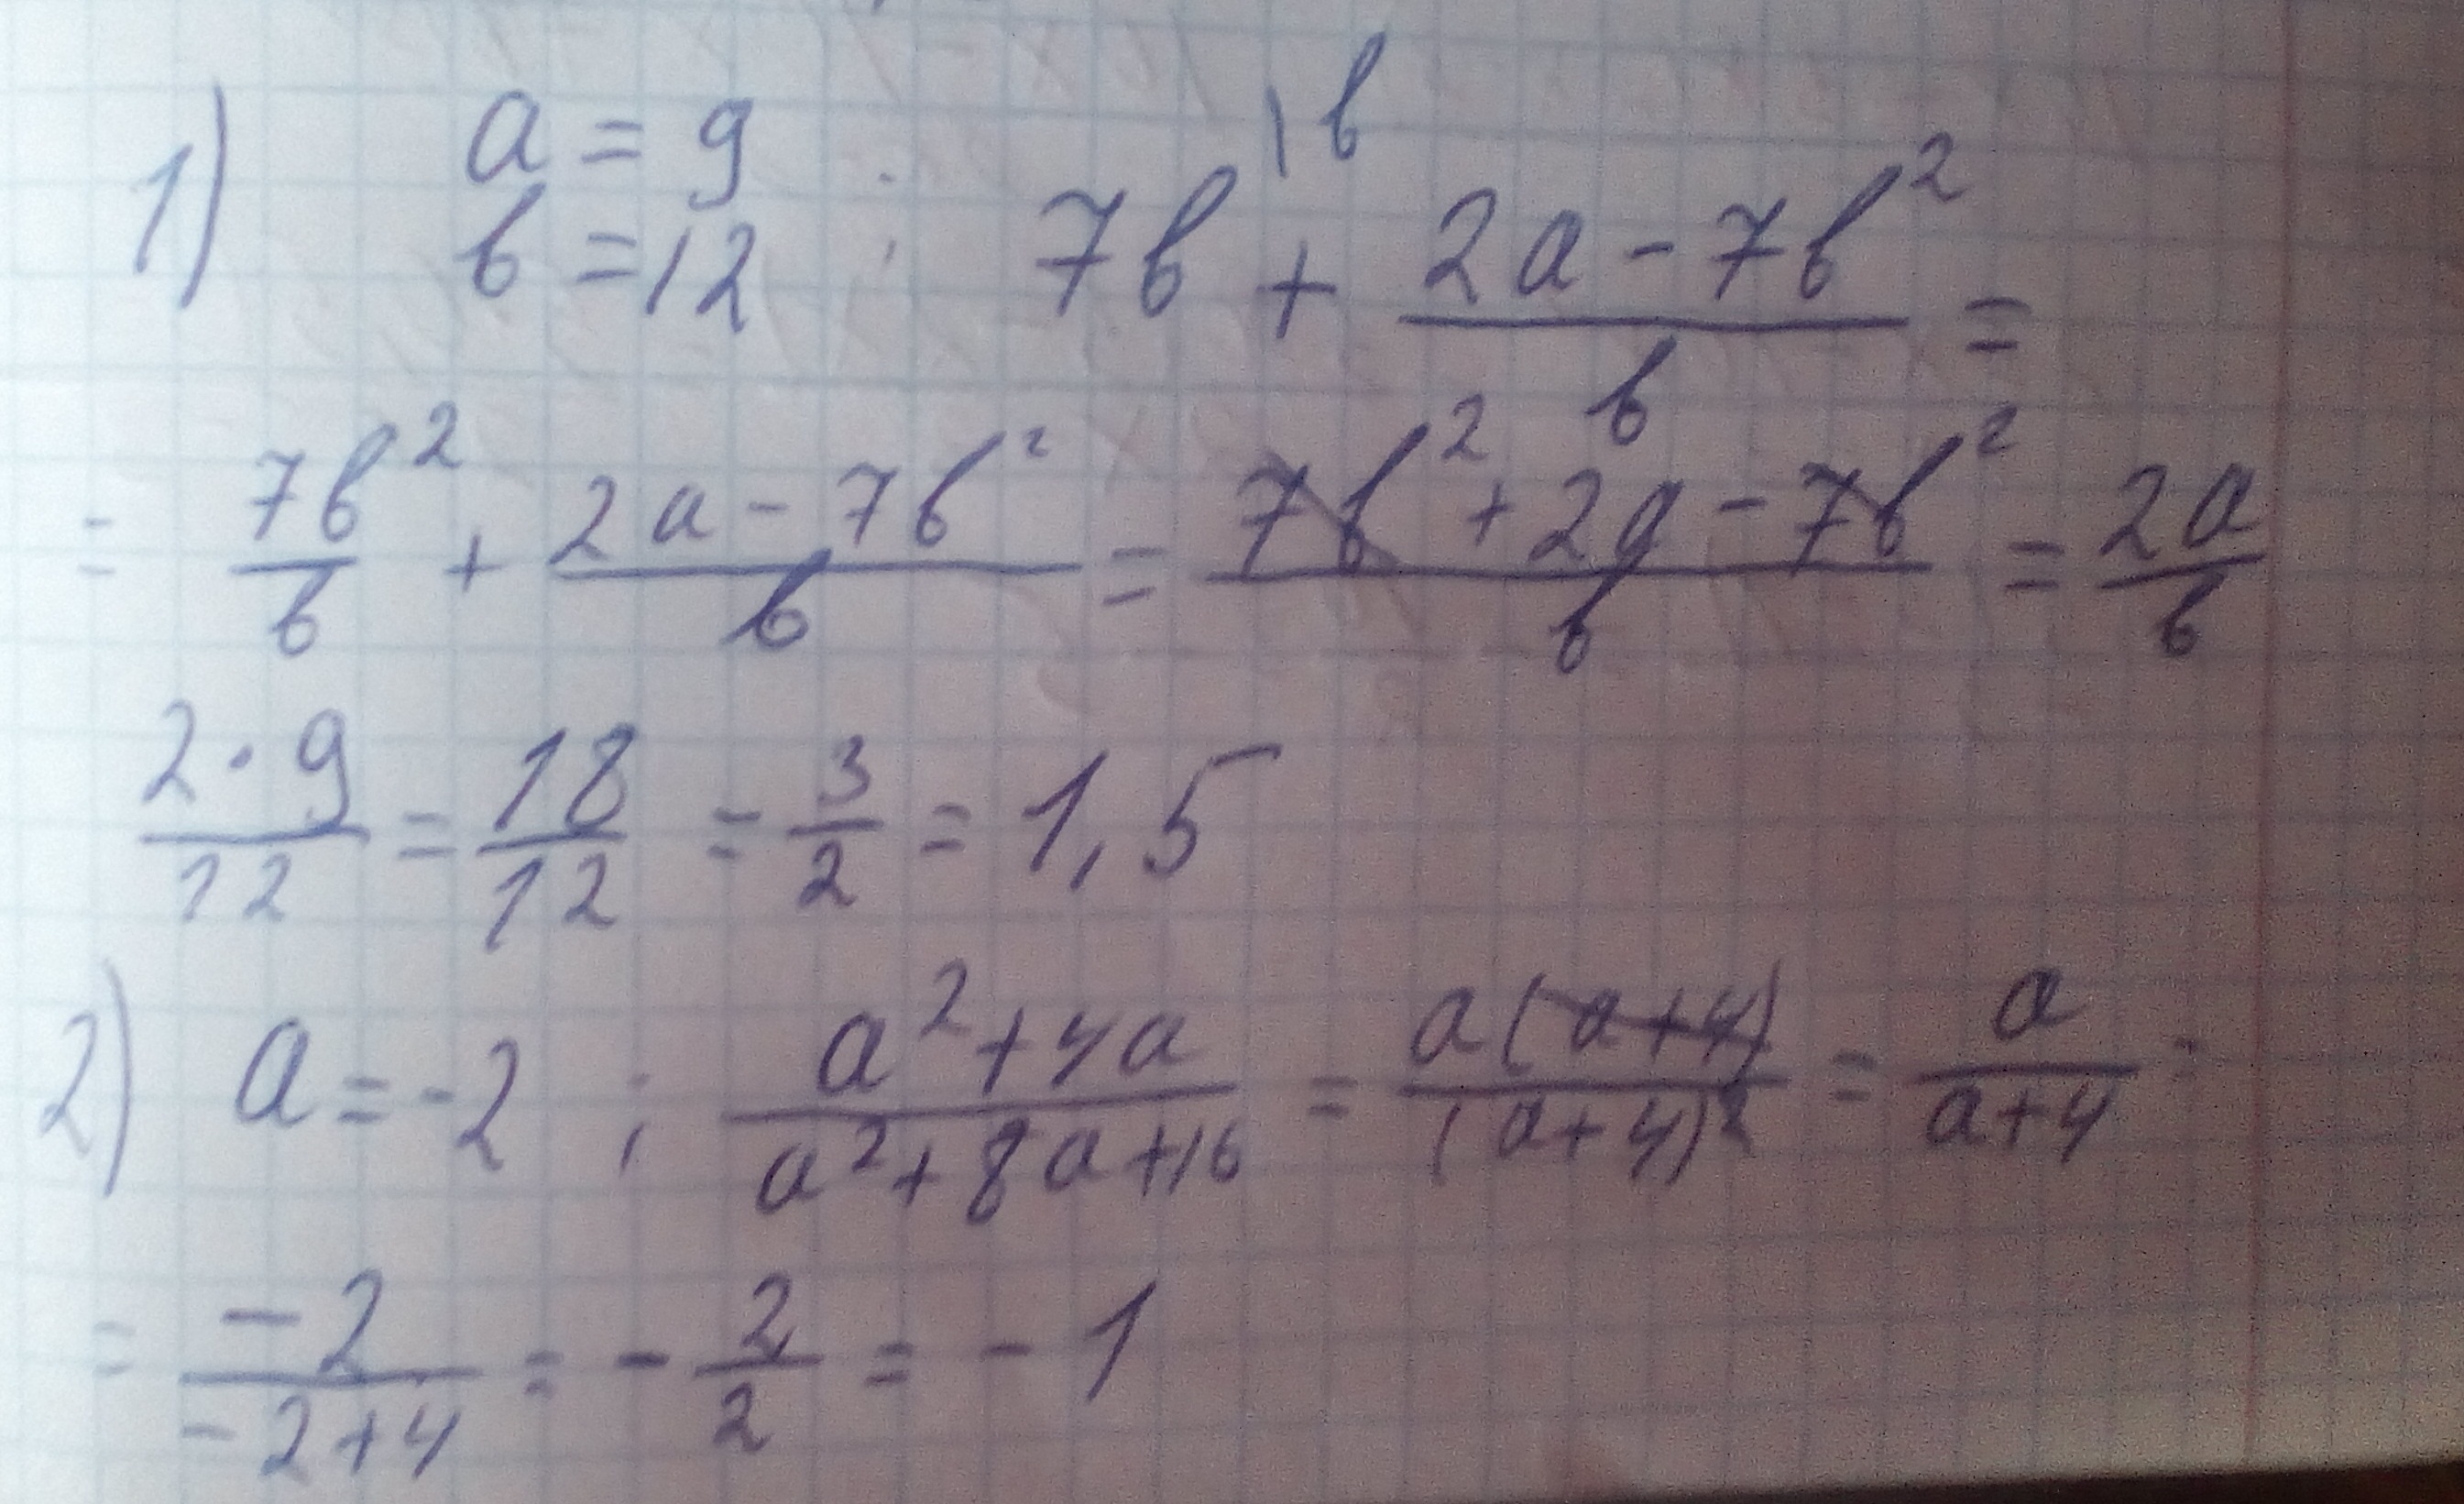 1) a = 9
b = 12 ; 7b + (2a - 7b²)/b =
= 7b²/b + (2a - 7b²)/b = (7b² + 2a - 7b²)/b = 2a/b
(2 · 9)/12 = 18/12 = 3/2 = 1,5
2) a = -2 ; (a² + 4a)/(a² + 8a + 16) = a(a+4)/(a+4)² = a/(a+4) =
= -2/(-2+4) = - 2/2 = - 1